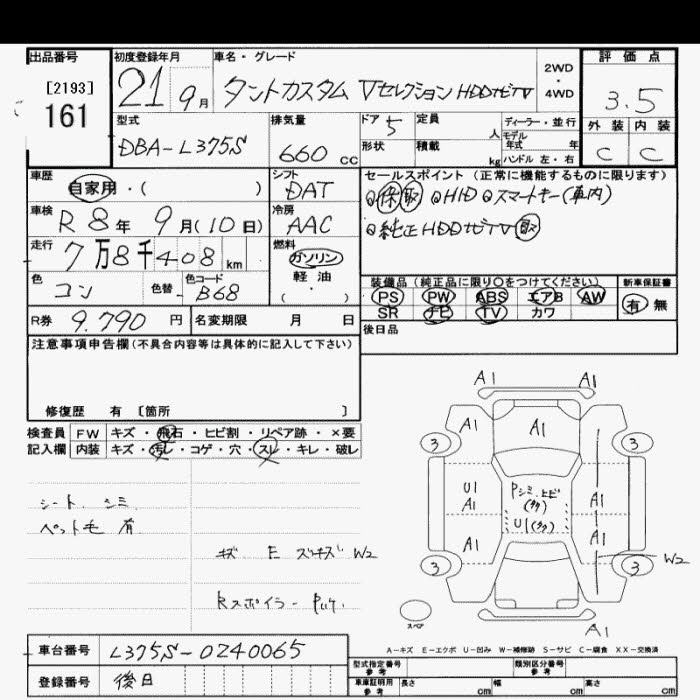 出品番号
[2193]
161
初度登録年月
21 9月
車名・グレード
タントカスタム Vセレクション HDDナビTV
2WD
・
4WD
評価点
3.5
外装 内装
C C
型式
DBA-L375S
排気量
660 cc
ドア 5
形状
定員
人
積載
kg
ディーラー・並行
モデル
年式 年
ハンドル 左・右
車歴
自家用・( )
シフト
DAT
車検
R8年 9月(10日)
冷房
AAC
走行
7万8千408km
燃料
ガソリン
軽・油
( ・ )
色
コン
色替
色コード
B68
セールスポイント (正常に機能するものに限ります)
保 取 HID スマートキー(車内)
純正HDDナビTV 取
装備品 (純正品に限り○をつけてください)
PS PW ABS エアB AW
SR ナビ TV カワ
新車保証書
有 無
R券 9.790 円
名変期限 月 日
後日品
注意事項申告欄(不具合内容等は具体的に記入して下さい)
修復歴 有 [箇所 ]
検査員
記入欄
FW キズ・飛石・ヒビ割・リペア跡・×要
内装 キズ・汚レ・コゲ・穴・スレ・キレ・破レ
シート シミ
ペット毛 有
キズ E
W2
Rスポイラー
A1 A1
A1 A1 A1
3 3
U1
A1
シミ、ヒビ
(多)
U1(多)
A1
A1 A1
W2
3 3
スペア
A1
A-キズ E-エクボ U-凹み W-補修跡 S-サビ C-腐食 XX-交換済
車台番号 L375S-0240065
登録番号 後日
型式指定番号
参考
類別区分番号
参考
車庫証明用
参考
長さ cm 幅 cm 高さ cm